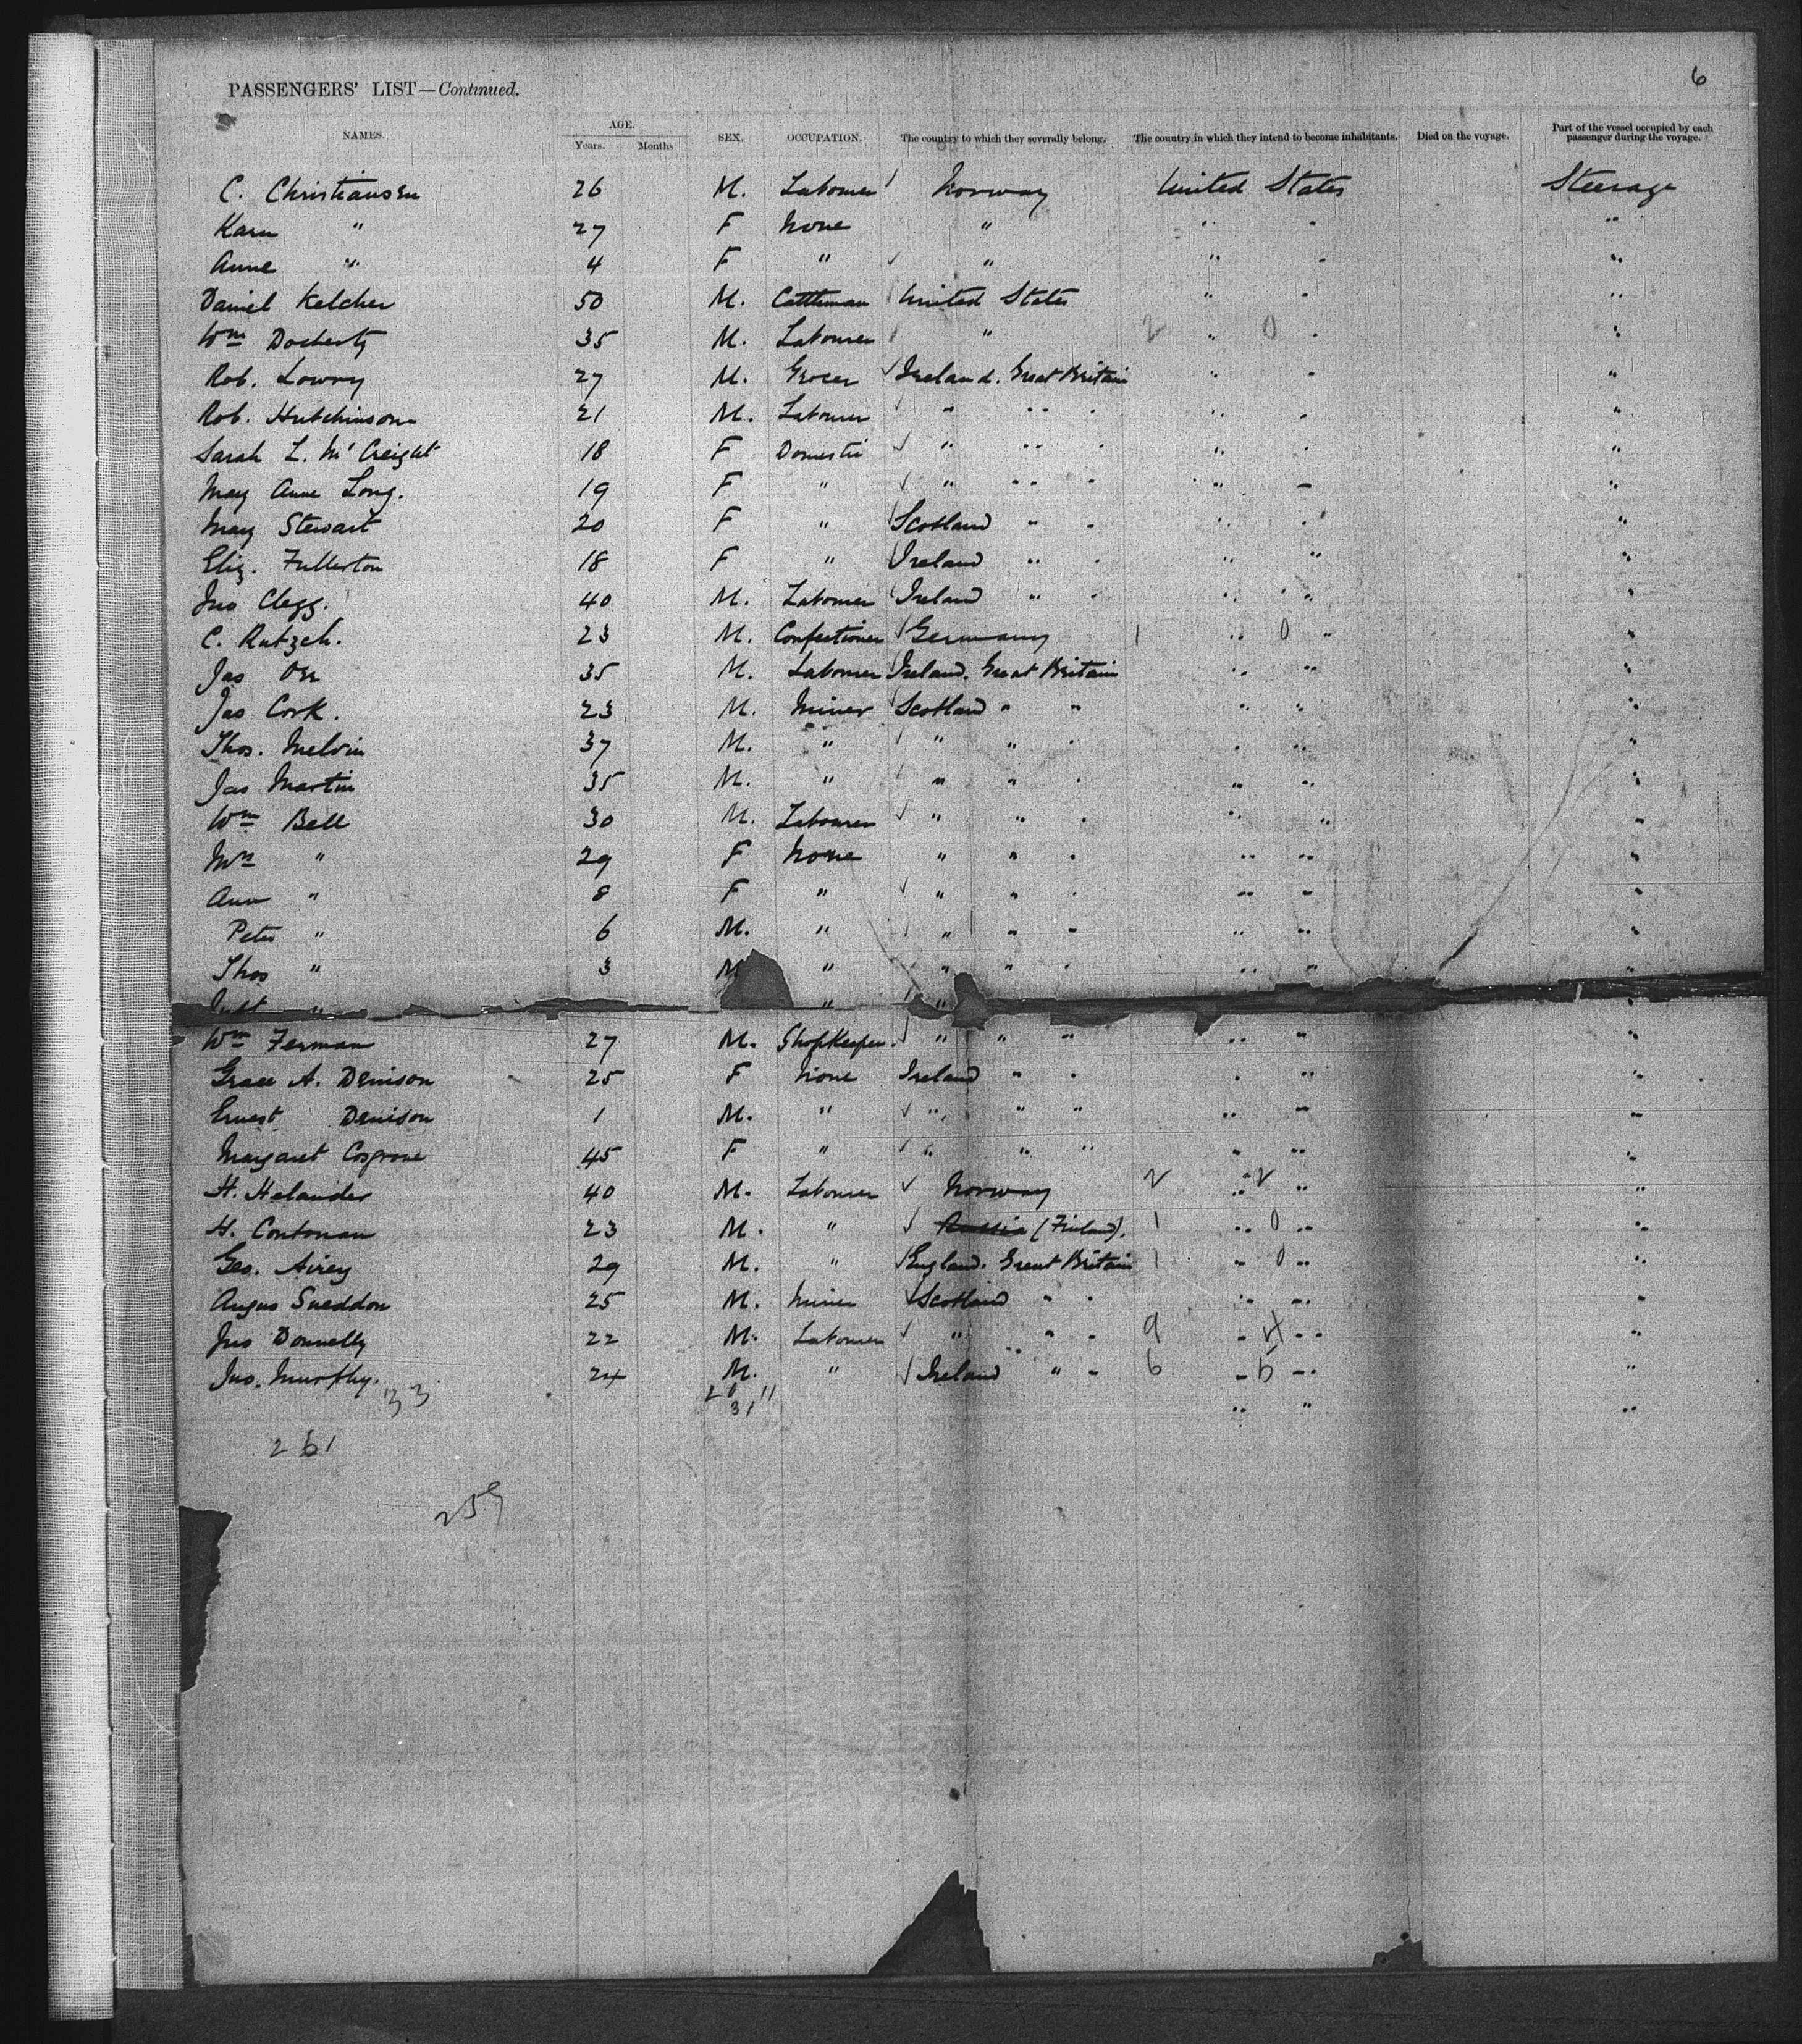 6
PASSENGERS' LIST—Continued.
NAMES. AGE. Years. Months SEX. OCCUPATION. The country to which they severally belong. The country in which they intend to become inhabitants. Died on the voyage. Part of the vessel occupied by each passenger during the voyage.
C. Christiansen 26 M. Labourer Norway United States Steerage
Karn " 27 F None " " " "
Anne " 4 F " " " " "
Daniel Kelcher 50 M. Cattleman United States " " "
Wm Docherty 35 M. Labourer " 2 " 0 " "
Rob. Lowry 27 M. Grocer Ireland. Great Britain " " "
Rob. Hutchinson 21 M. Labourer " " " " " "
Sarah L. McCreight 18 F Domestic " " " " " "
Mary Anne Long. 19 F " " " " " " "
Mary Stewart 20 F " Scotland " " " " "
Eliz. Fullerton 18 F " Ireland " " " " "
Jno Clegg. 40 M. Labourer Ireland " " " " "
C. Rutzch. 23 M. Confectioner Germany 1 " 0 " "
Jas Orr 35 M. Labourer Ireland. Great Britain " " "
Jas Cork. 23 M. Miner Scotland " " " " "
Thos. Melvin 37 M. " " " " " " "
Jas Martin 35 M. " " " " " " "
Wm Bell 30 M. Labourer " " " " " "
Mrs " 29 F None " " " " " "
Ann " 8 F " " " " " " "
Peter " 6 M. " " " " " " "
Thos " 3 M " " " " " " "
Inft " " " "
Wm Ferman 27 M. ShopKeeper. " " " " " "
Grace A. Denison 25 F None Ireland " " " " "
Ernest Denison 1 M. " " " " " " "
Margaret Cosgrove 45 F " " " " " " "
H. Helander 40 M. Labourer Norway 2 " 2 " "
H. Contonan 23 M. " Russia (Finland). 1 " 0 " "
Geo. Airey 29 M. " England. Great Britain 1 " 0 " "
Angus Sneddon 25 M. Miner Scotland " " " " "
Jno Donnelly 22 M. Labourer " " " 9 " 4 " "
Jno. Murphy. 24 M. " Ireland " " 6 " 5 " "
33 20 11 " " "
31
261
259